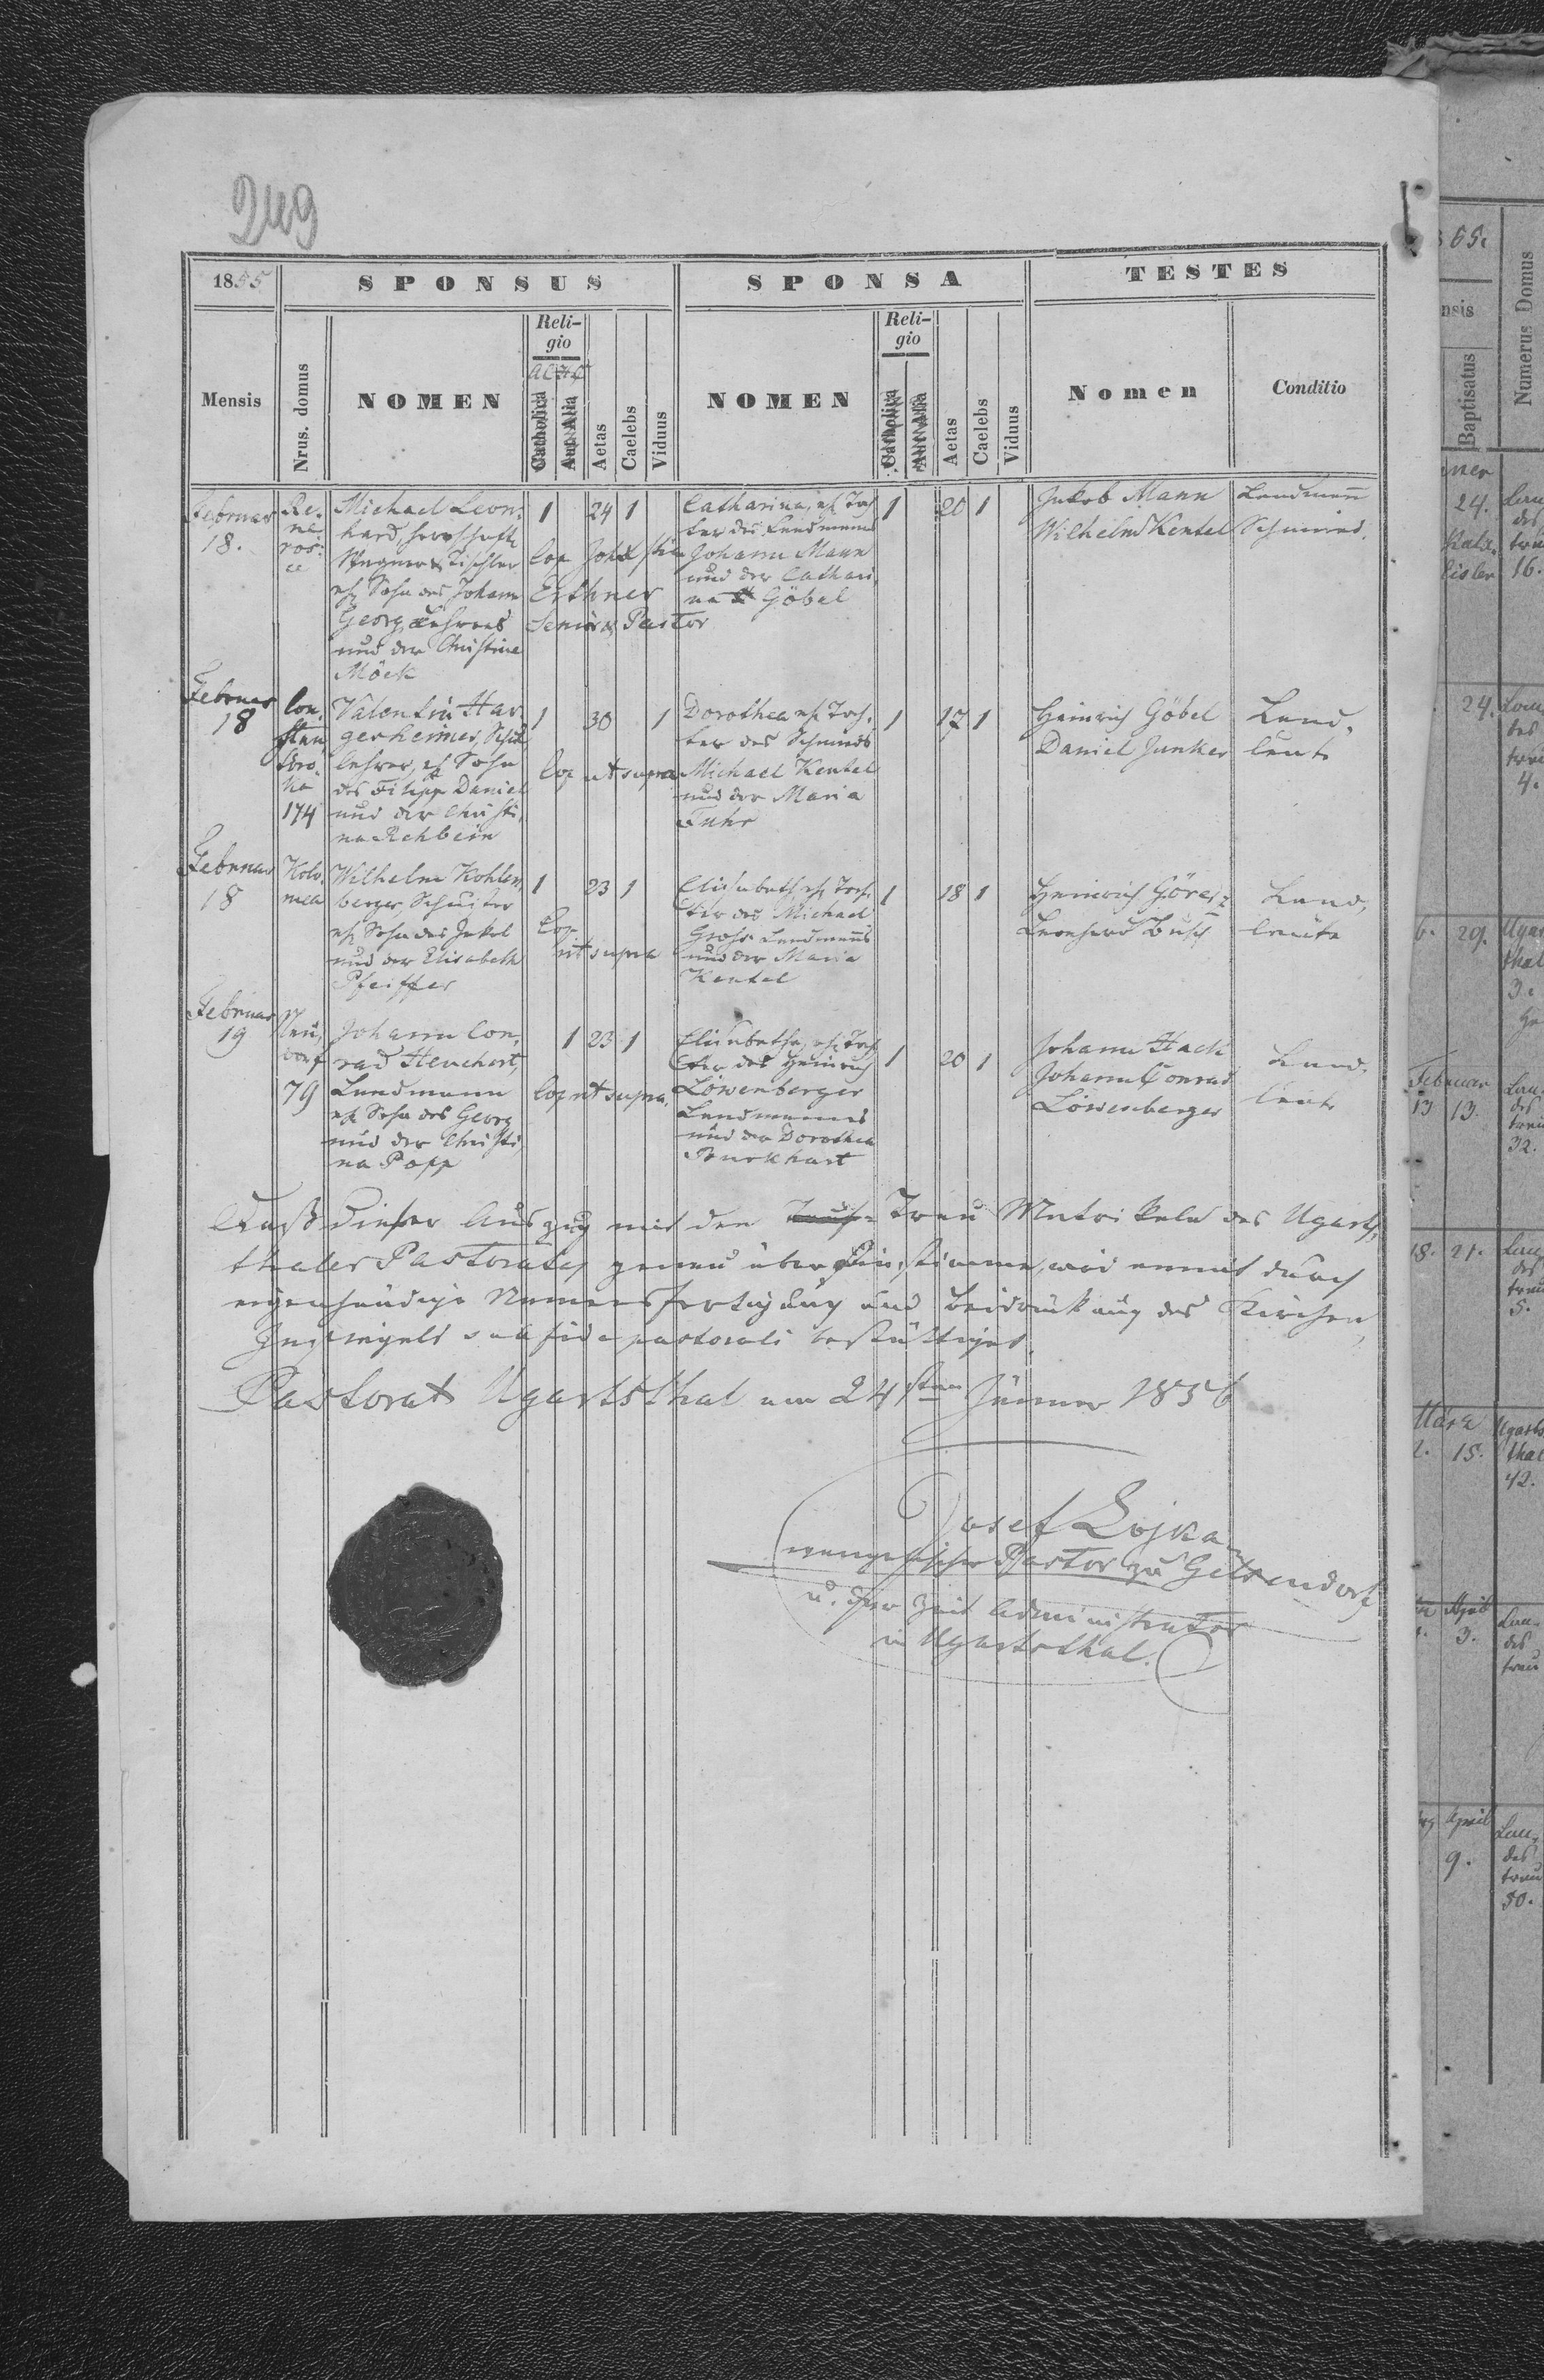 249
1855
SPONSUS
SPONSA
TESTES
Mensis
Nrus. domus
NOMEN
Religio
A C H C
Catholica
Aut Alia
Aetas
Caelebs
Viduus
NOMEN
Religio
Catholica
Aut Alia
Aetas
Caelebs
Viduus
Nomen
Conditio
Februar
18.
Michael Leon,
hard, herrschaftl.
Wagner & Tischler
ehl Sohn des Johann
Georg Lehrers
und der Christina
Möck
1 24 1
Cop
Erthner
Senior & Pastor
Catharina, ehl. Toch
ter des Landmanns
Johann Mann
und der Cathari
na Göbel
1 20 1
Jakob Mann
Wilhelm Kentel
Landmann
Schmied.
Februar
18
Con,
stan,
tino,
174
Valentin Har,
gesheimer, Schul
lehrer, ehl Sohn
des Filipp Daniel
und der Christi,
na Rehbein
1 30 1
Cop ut supra
Dorothea ehl. Toch,
ter des Schmieds
Michael Kentel
und der Maria
Fuhr
1 17 1
Heinrich Göbel
Daniel Junker
Land,
leute
Februar
18
Kolo,
mea
Wilhelm Kohlen,
berger, Schuster
ehl Sohn des Jakob
und der Elisabeth
Pfeiffer
1 23 1
Cop
ut supra
Elisabeth ehl. Toch,
ter des Michael
Grohs Landmanns
und der Maria
Kentel
1 18 1
Heinrich Göres
Leonhard Busch
Land,
leute
Februar
19
Neu,
dorf
79
Johann Con,
rad Heuchert,
Landmann
ehl Sohn des Georg
und der Christi,
na Popp
1 23 1
Cop ut supra.
Elisabetha, ehl. Toch
ter des Heinrich
Löwenberger
Landmannes
und der Dorothea
Burkhart
1 20 1
Johann Hack
Johann Conrad
Löwenberger
Land,
leute
Daß dieser Auszug mit den Tauf= Trau Matrikeln des Ugarts,
thaler Pastorates genau übereinstimme, wird anmit durch
eigenhändige Namensfertigung und Beidrückung des Kirchen,
Insiegels sub fide pastorali bestättiget.
Pastorat Ugartsthal am 24sten Jänner 1856
Josef Lojka
evangelischer Pastor zu Gelsendorf
u. der Zeit Administrator
in Ugartsthal.
65.
nsis
Baptisatus
Numerus Domus
24.
16.
24.
4.
29.
Ugar
thal
3.
Februar
13
13.
32.
18. 21.
5.
März
15.
Ugarts
thal
42.
April
3.
Lan
des
treu
April
9.
Lan,
des
treu
50.